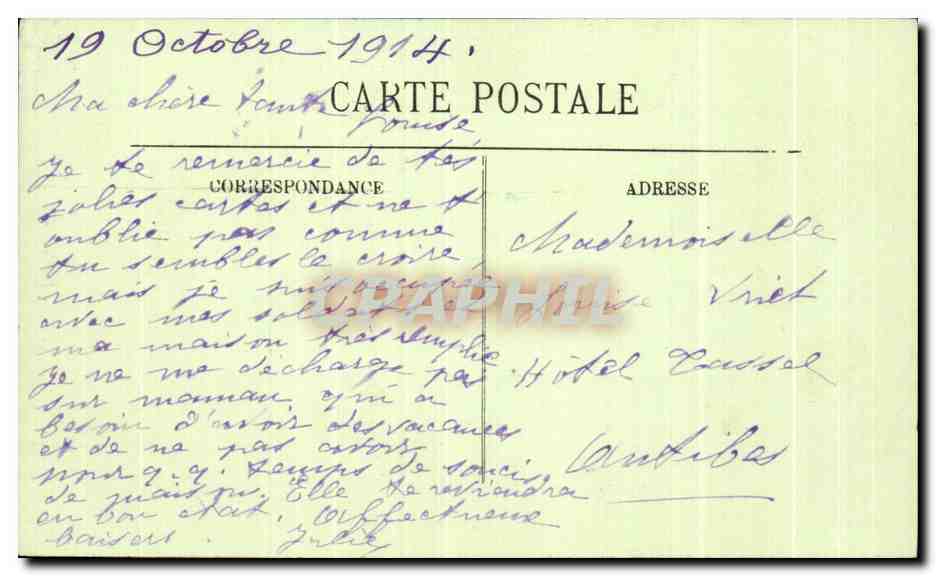 19 Octobre 1914.
CARTE POSTALE
Ma chère tante Louise
CORRESPONDANCE
je te remercie de tes
jolies cartes et ne t
oublie pas comme
tu sembles le croire
mais je suis occupée
avec mes soldats et
ma maison très remplie
je ne me décharge pas
sur maman qui a
besoin d'avoir des vacances
et de ne pas avoir
pour q.q. temps de soucis
de maison. Elle te reviendra
en bon état. Affectueux
baisers. Julie
ADRESSE
Mademoiselle
Louise Vriet
Hôtel Tassel
Antibes
CRAPHIL